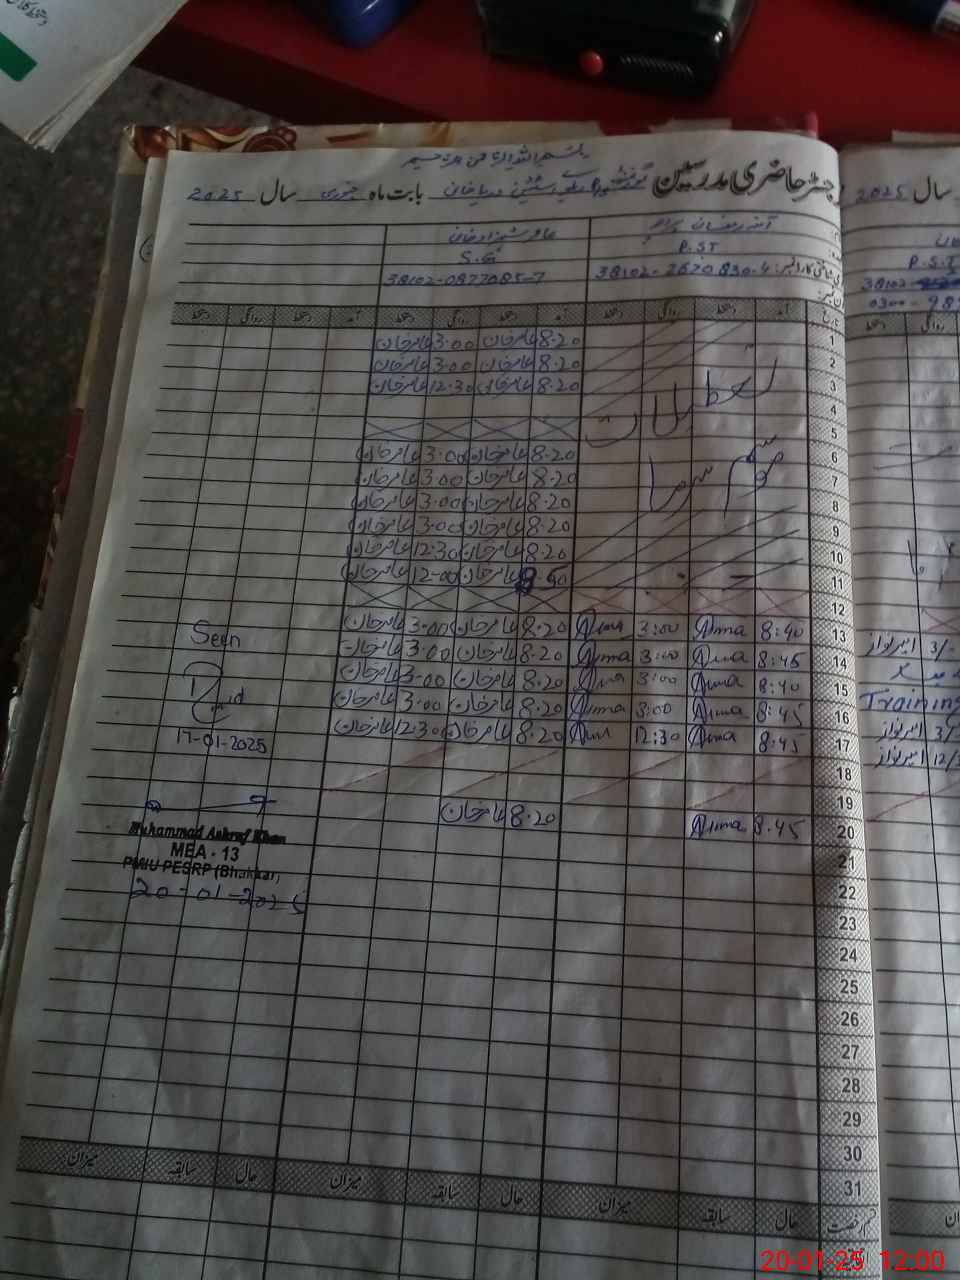 بسم اللہ الرحمن الرحیم
رجسٹر حاضری مدرسین گورنمنٹ دریا خان بابت ماہ جنوری سال 2025
سال 2025
آمنہ رمضان عامر شہزاد خان
P.ST S.G
P.S.T
38102-2620830-4 38102-0877085-7
38102-
0300-98
تاریخ آمد دستخط روانگی دستخط آمد دستخط روانگی دستخط آمد دستخط روانگی دستخط
1 8.20 عامر خان 3.00 عامر خان
2 8.20 عامر خان 3.00 عامر خان
3 تعطیلات 8.20 عامر خان 12.30 عامر خان
4
5
6 8.20 عامر خان 3.00 عامر خان
7 موسم سرما 8.20 عامر خان 3.00 عامر خان
8 8.20 عامر خان 3.00 عامر خان
9 8.20 عامر خان 3.00 عامر خان
10 8.20 عامر خان 12.30 عامر خان
11 8.50 عامر خان 12.00 عامر خان
12
13 8:40 Aima 3:00 Aima 8.20 عامر خان 3.00 عامر خان Seen
14 8:45 Aima 3:00 Aima 8.20 عامر خان 3.00 عامر خان
15 8:40 Aima 3:00 8.20 عامر خان 3.00 عامر خان
16 8:45 Aima 3:00 Aima 8.20 عامر خان 3.00 عامر خان
17 8:45 Aima 12:30 8.20 عامر خان 12.30 عامر خان 17-01-2025
امیر نواز 3/
Training
امیر نواز 3/
امیر نواز 12/3
18
19
20 8.45 Aima 8.20 عامر خان
Muhammad Ashraf Khan
MEA - 13
PMIU PESRP (Bhakkar)
20-01-2025
21
22
23
24
25
26
27
28
29
30
31
قسم رخصت حال سابقہ میزان حال سابقہ میزان حال سابقہ میزان
20-01-25 12:00